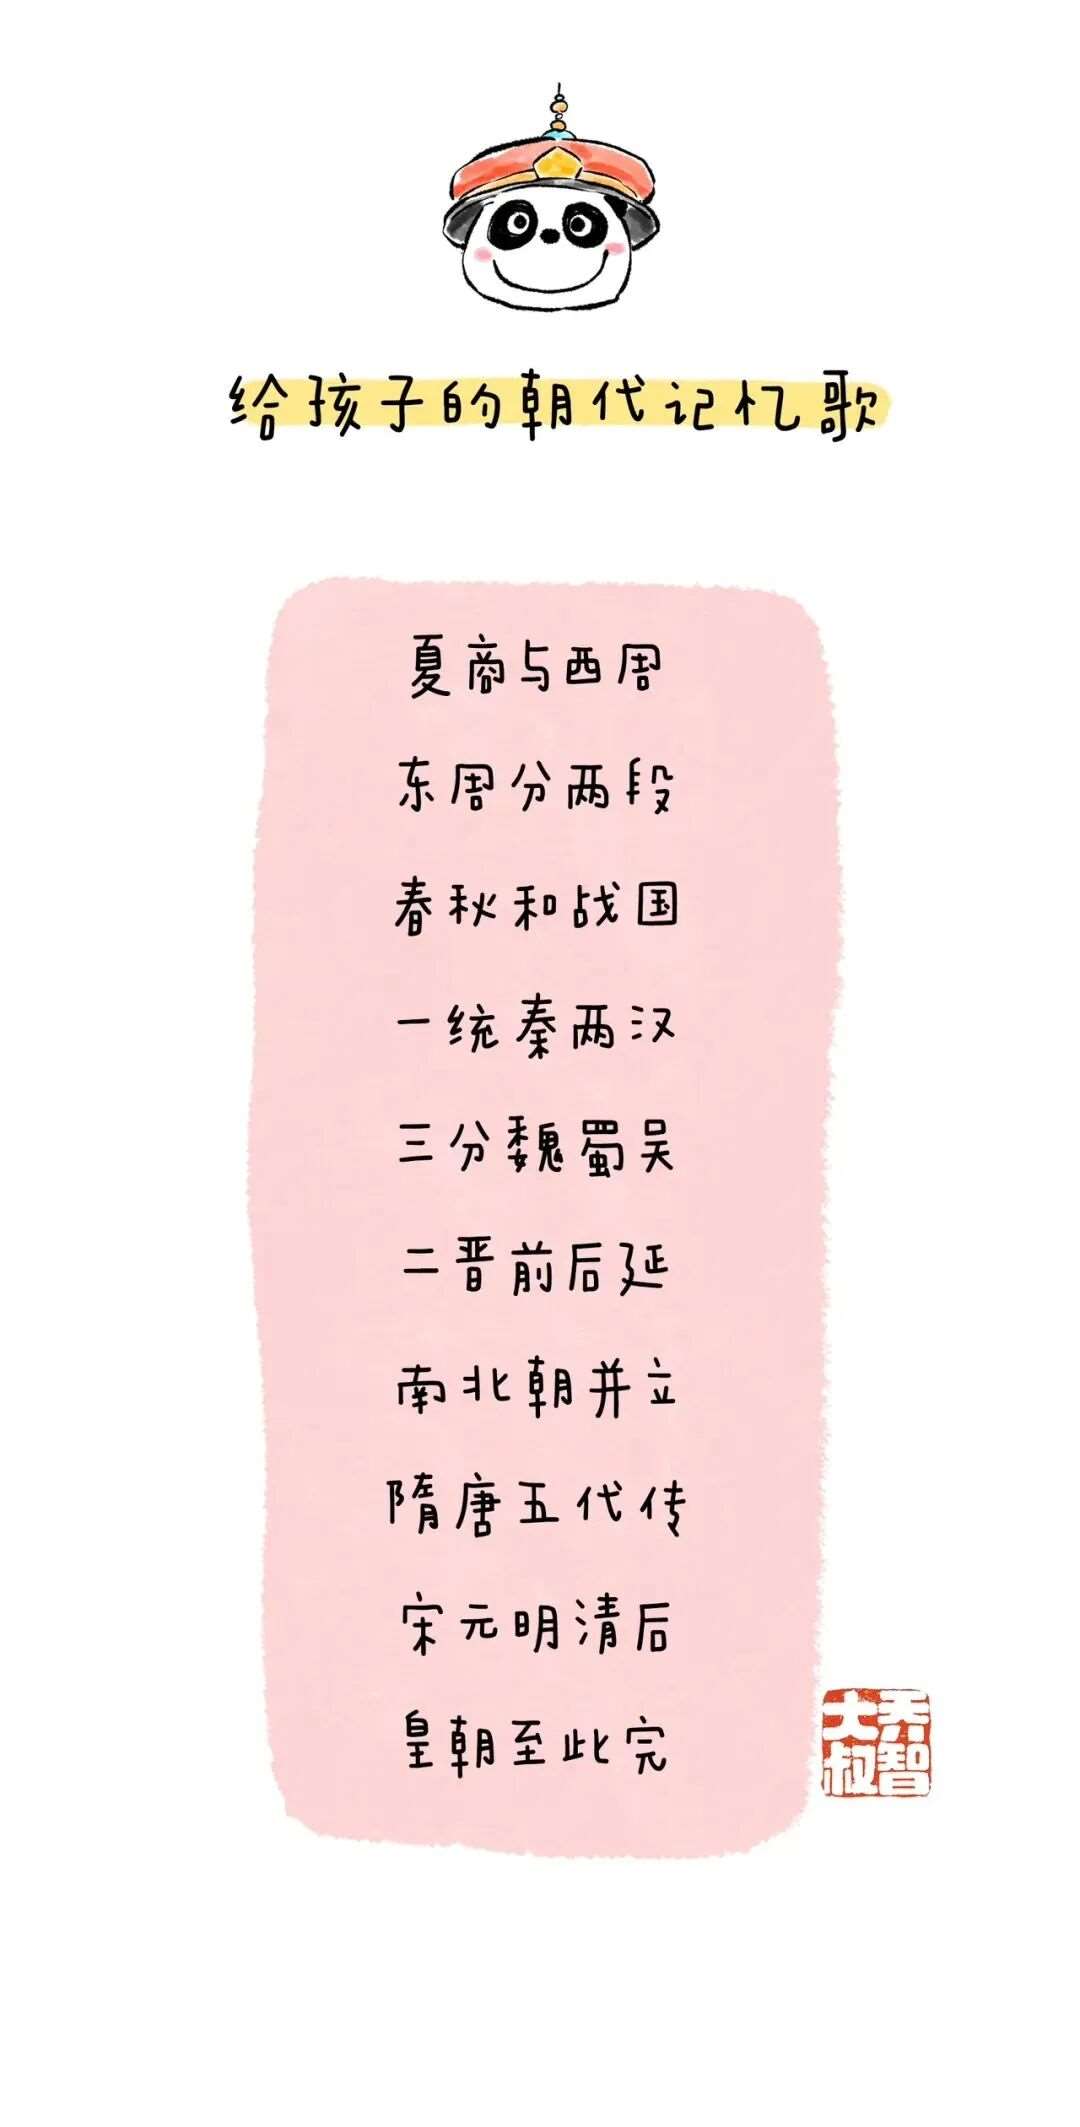 给孩子的朝代记忆歌
夏商与西周
东周分两段
春秋和战国
一统秦两汉
三分魏蜀吴
二晋前后延
南北朝并立
隋唐五代传
宋元明清后
皇朝至此完
乔智
大叔